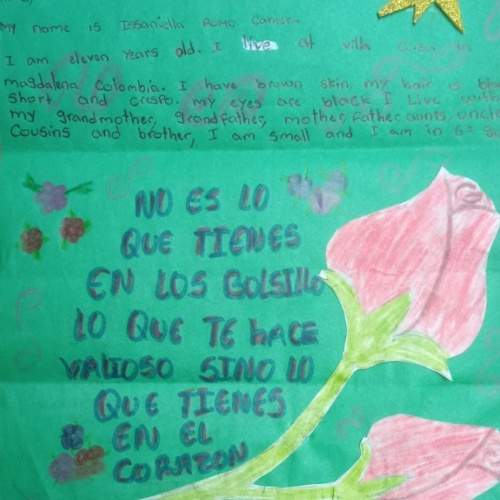 My name is Issaniella Romo
I am eleven years old. I live at villa in
magdalena Colombia. I have brown skin, my hair is
short and crespo. my eyes are black I Live with
my grandmother, grandfather, mother, father, aunts,
Cousins and brother, I am small and I am in 6º
NO ES LO
QUE TIENES
EN LOS BOLSILLO
LO QUE TE HACE
VALIOSO SINO LO
QUE TIENES
EN EL
CORAZON